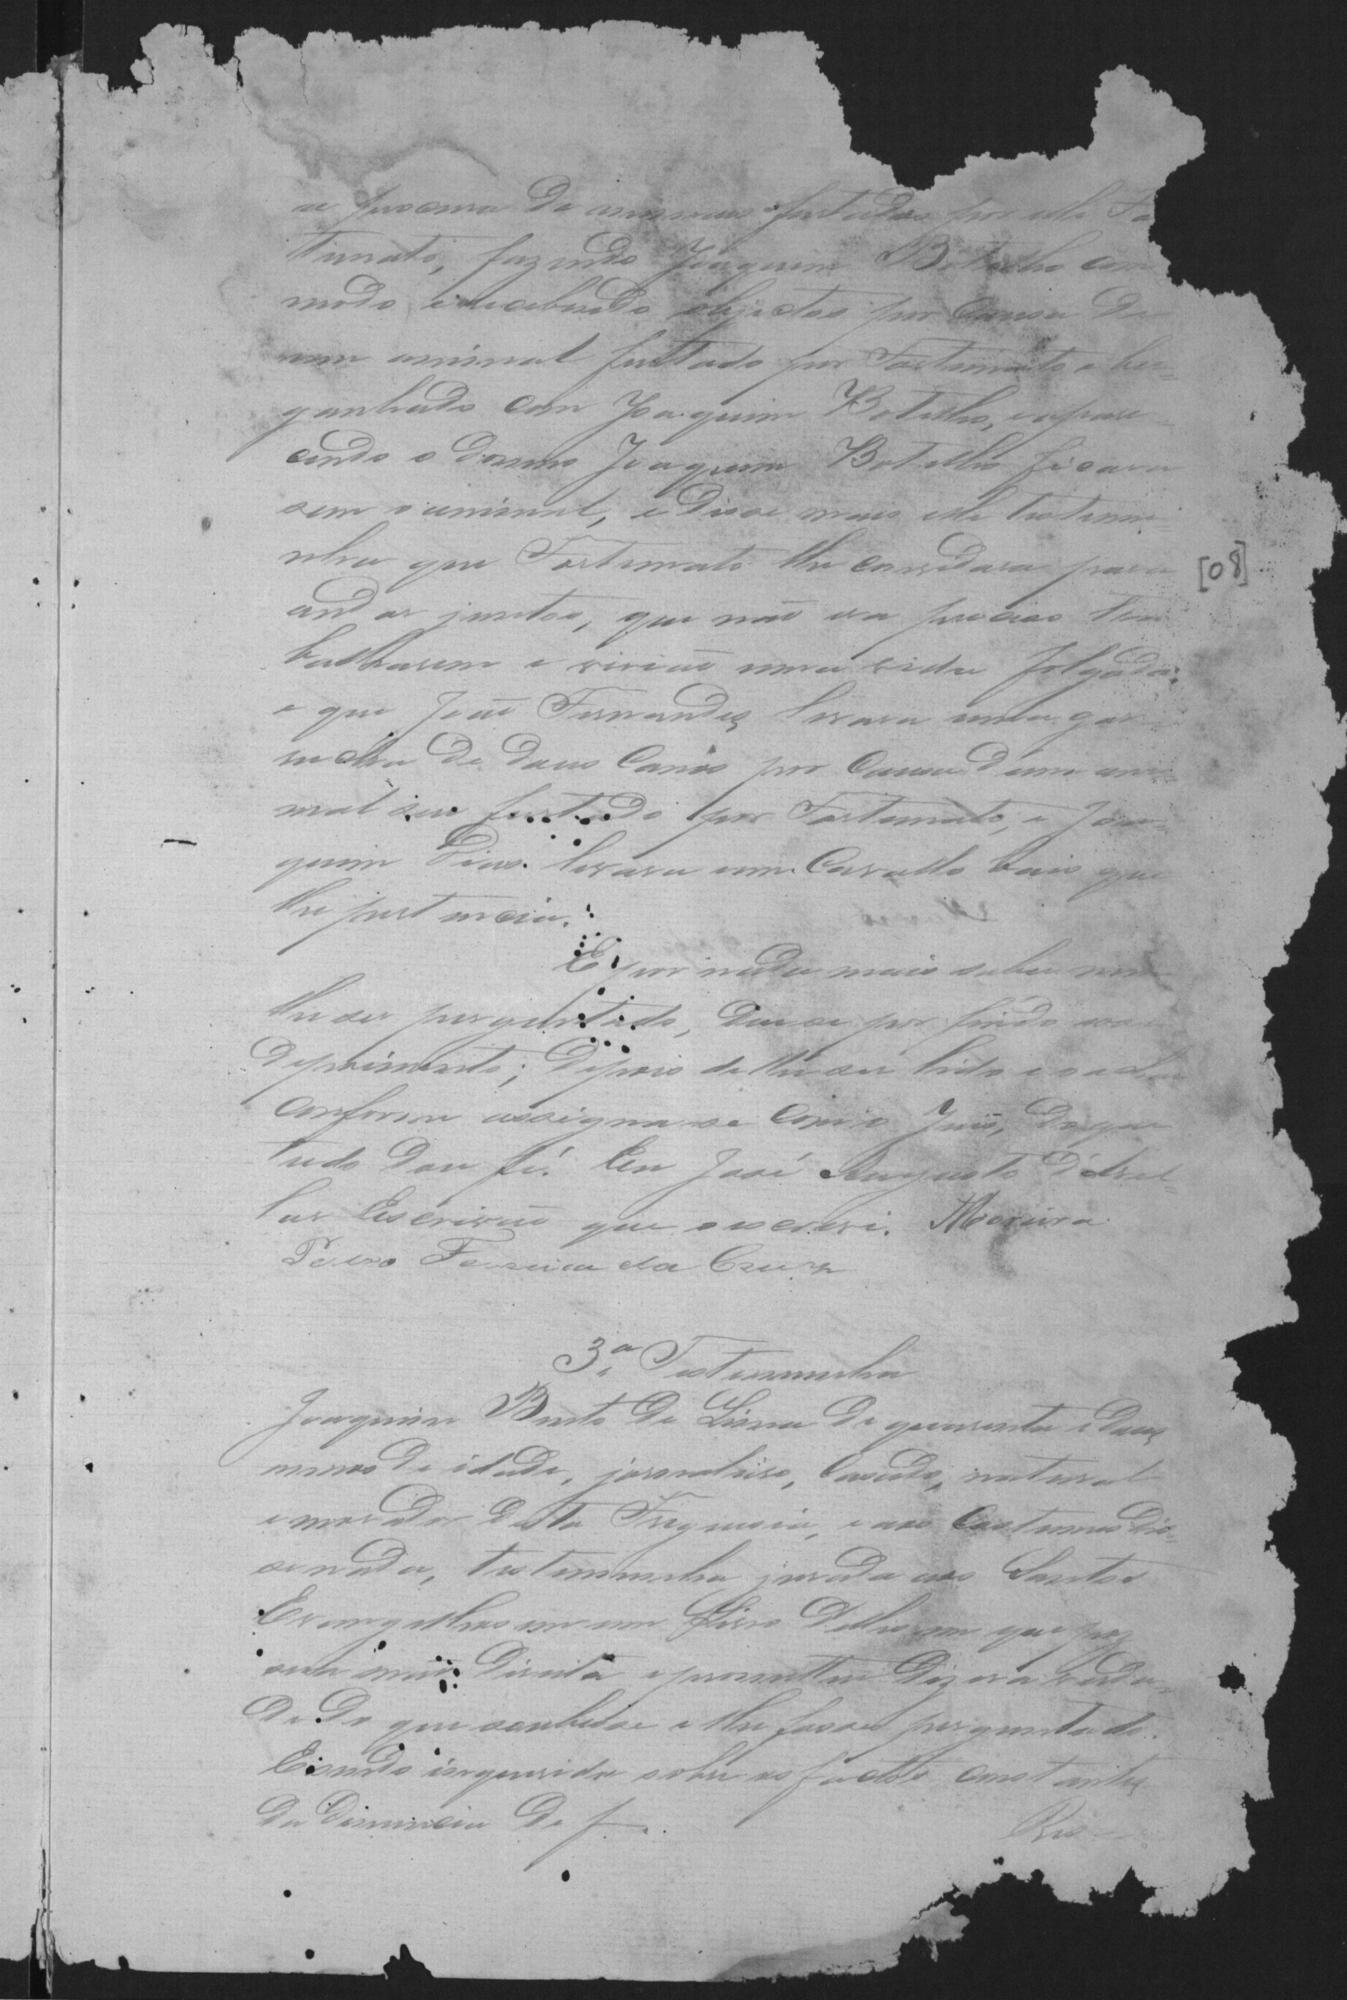 a procura de animaes furtados por elle For
tunato, fazendo Joaquim Botelho com
modo e recebendo objectos por causa de
um animal furtado por Fortunato e bar=
ganhado com Joaquim Botelho, e apare
cendo o donno Joaquim Botelho ficara
sem o animal, e disse mais elle testemu=
nha que Fortunato lhe convidara para
andar juntos, que não era preciso tra
balharem e vivião uma vida folgada;
e que João Fernandes levara uma gar=
rucha de dous canos por causa d'um ani
mal seu furtado por Fortunato, e Joa=
quim Dias levara um cavallo baio que
lhe pertencia.
E por nada mais saber nem
lhe ser perguntado, deu-se por findo este
depoimento; depois de lhe ser lido e achar
conforme assigna-se com o Juiz, do que
tudo dou fé. Eu José Augusto
Escrivão que o escrevi. Moreira
Pedro Ferreira da Cruz
3ª Testemunha
Joaquim Bento de Lima de quarenta e dous
annos de idade, jornaleiro, casado, natural
e morador desta Freguesia, e aos costumes dis=
se nada, testemunha jurada aos Santos
Evangelhos em um Livro delles em que poz
sua mão direita e prometteu dizer a verda=
de do que soubesse e lhe fosse perguntado.
E sendo inquerido sobre os factos constantes
da denuncia de f
Res
[08]